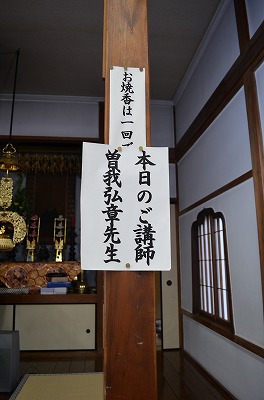 お焼香は一回
本日のご講師
曽我弘章先生